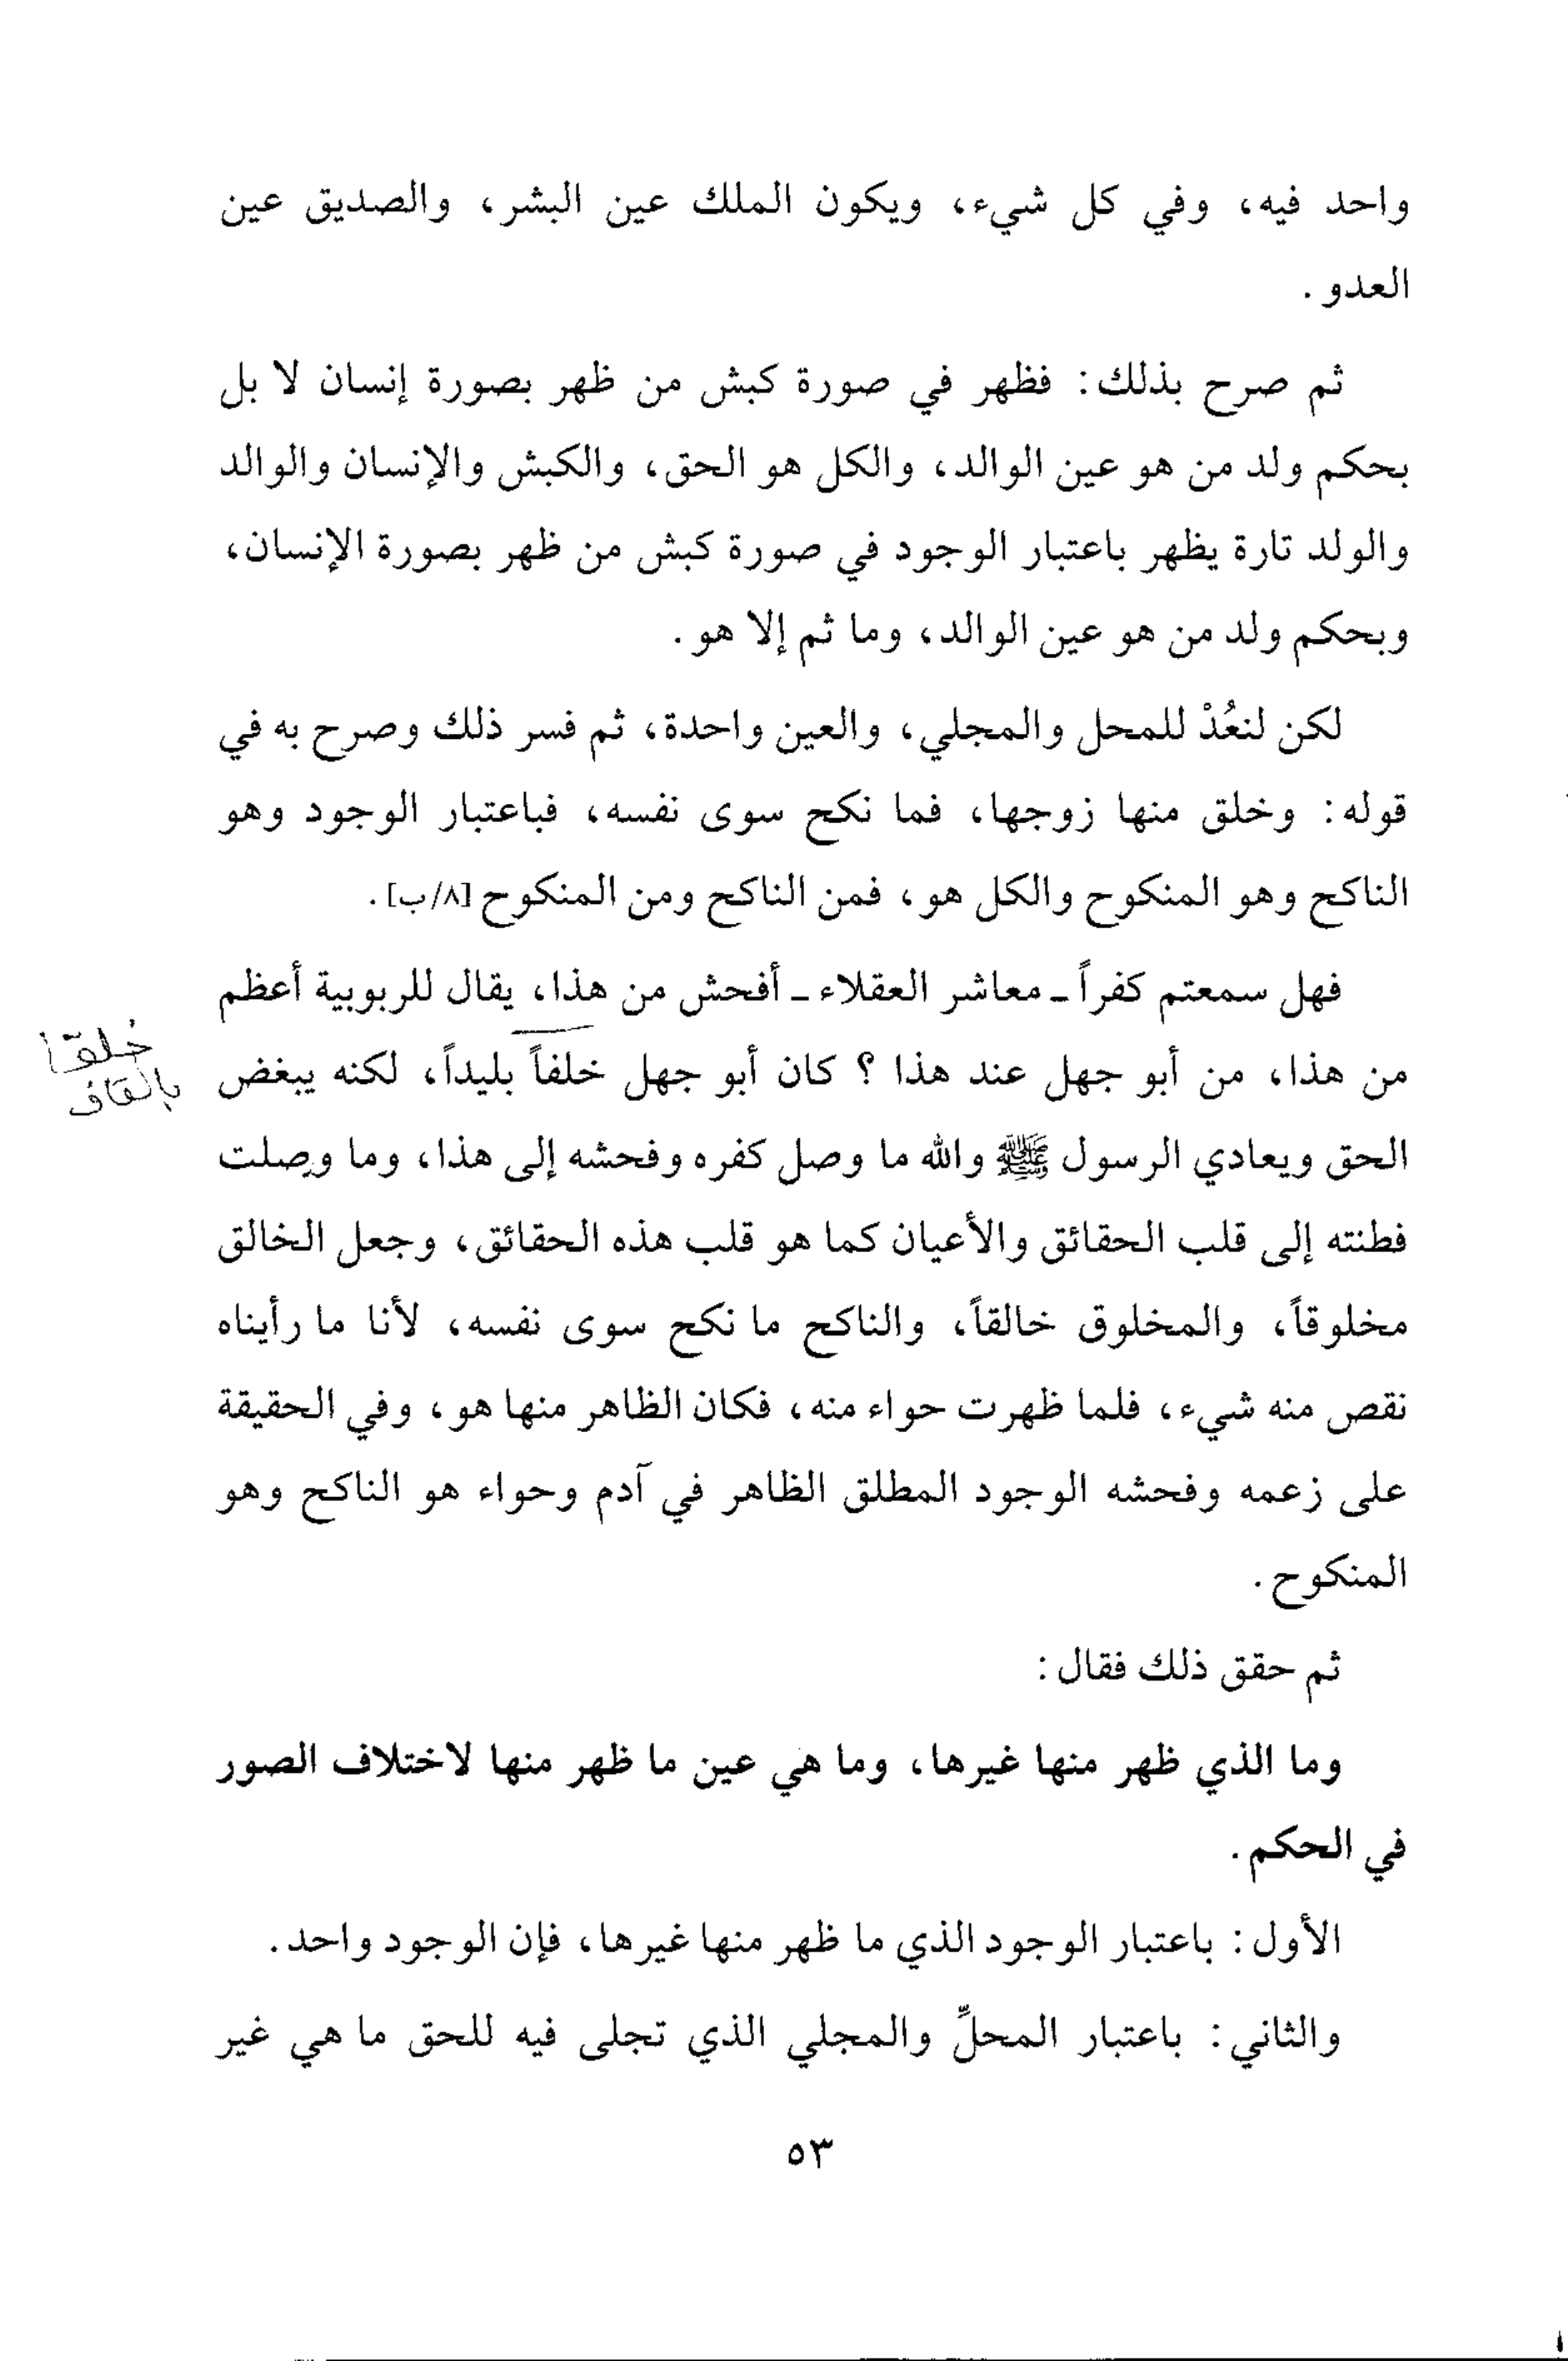 واحد فيه، وفي كل شيء، ويكون الملك عين البشر، والصديق عين
العدو.
ثم صرح بذلك: فظهر في صورة كبش من ظهر بصورة إنسان لا بل
بحكم ولد من هو عين الوالد، والكل هو الحق، والكبش والإنسان والوالد
والولد تارة يظهر باعتبار الوجود في صورة كبش من ظهر بصورة الإنسان،
وبحكم ولد من هو عين الوالد، وما ثم إلا هو.
لكن لنعُدْ للمحل والمجلي، والعين واحدة، ثم فسر ذلك وصرح به في
قوله: وخلق منها زوجها، فما نكح سوى نفسه، فباعتبار الوجود وهو
الناكح وهو المنكوح والكل هو، فمن الناكح ومن المنكوح [٨/ب].
فهل سمعتم كفراً ـ معاشر العقلاء ـ أفحش من هذا، يقال للربوبية أعظم
من هذا، من أبو جهل عند هذا ؟ كان أبو جهل خلفاً بليداً، لكنه يبغض
خلقًا
بالقاف
الحق ويعادي الرسول ﷺ والله ما وصل كفره وفحشه إلى هذا، وما وصلت
فطنته إلى قلب الحقائق والأعيان كما هو قلب هذه الحقائق، وجعل الخالق
مخلوقاً، والمخلوق خالقاً، والناكح ما نكح سوى نفسه، لأنا ما رأيناه
نقص منه شيء، فلما ظهرت حواء منه، فكان الظاهر منها هو، وفي الحقيقة
على زعمه وفحشه الوجود المطلق الظاهر في آدم وحواء هو الناكح وهو
المنكوح.
ثم حقق ذلك فقال:
وما الذي ظهر منها غيرها، وما هي عين ما ظهر منها لاختلاف الصور
في الحكم.
الأول: باعتبار الوجود الذي ما ظهر منها غيرها، فإن الوجود واحد.
والثاني: باعتبار المحلِّ والمجلي الذي تجلى فيه للحق ما هي غير
٥٣